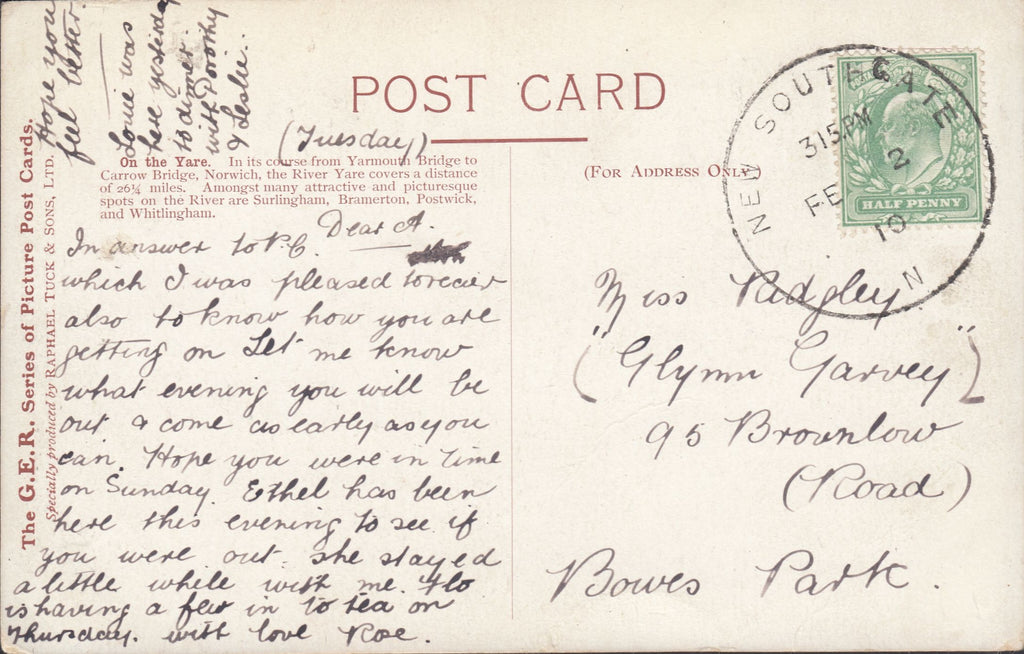 Hope you
feel better.
Louie was
here yesterday
to dinner
with Dorothy
& Leslie..
POST CARD
(Tuesday)
The G.E.R. Series of Picture Post Cards.
Specially produced by RAPHAEL TUCK & SONS, LTD.
On the Yare. In its course from Yarmouth Bridge to
Carrow Bridge, Norwich, the River Yare covers a distance
of 26¼ miles. Amongst many attractive and picturesque
spots on the River are Surlingham, Bramerton, Postwick,
and Whitlingham.
Dear A.
In answer to P.C.
which I was pleased to recier
also to know how you are
getting on Let me know
what evening you will be
out & come as early as you
can. Hope you were in time
on Sunday. Ethel has been
here this evening to see if
you were out. She stayed
a little while with me. Flo
is having a few in to tea on
Thursday. with love Rose.
(FOR ADDRESS ONLY
NEW SOUTHGATE
3 15 PM
FE 2
10
N
HALF PENNY
Miss Ridgley
("Glynn Garvey")
95 Brownlow
(Road)
Bowes Park.